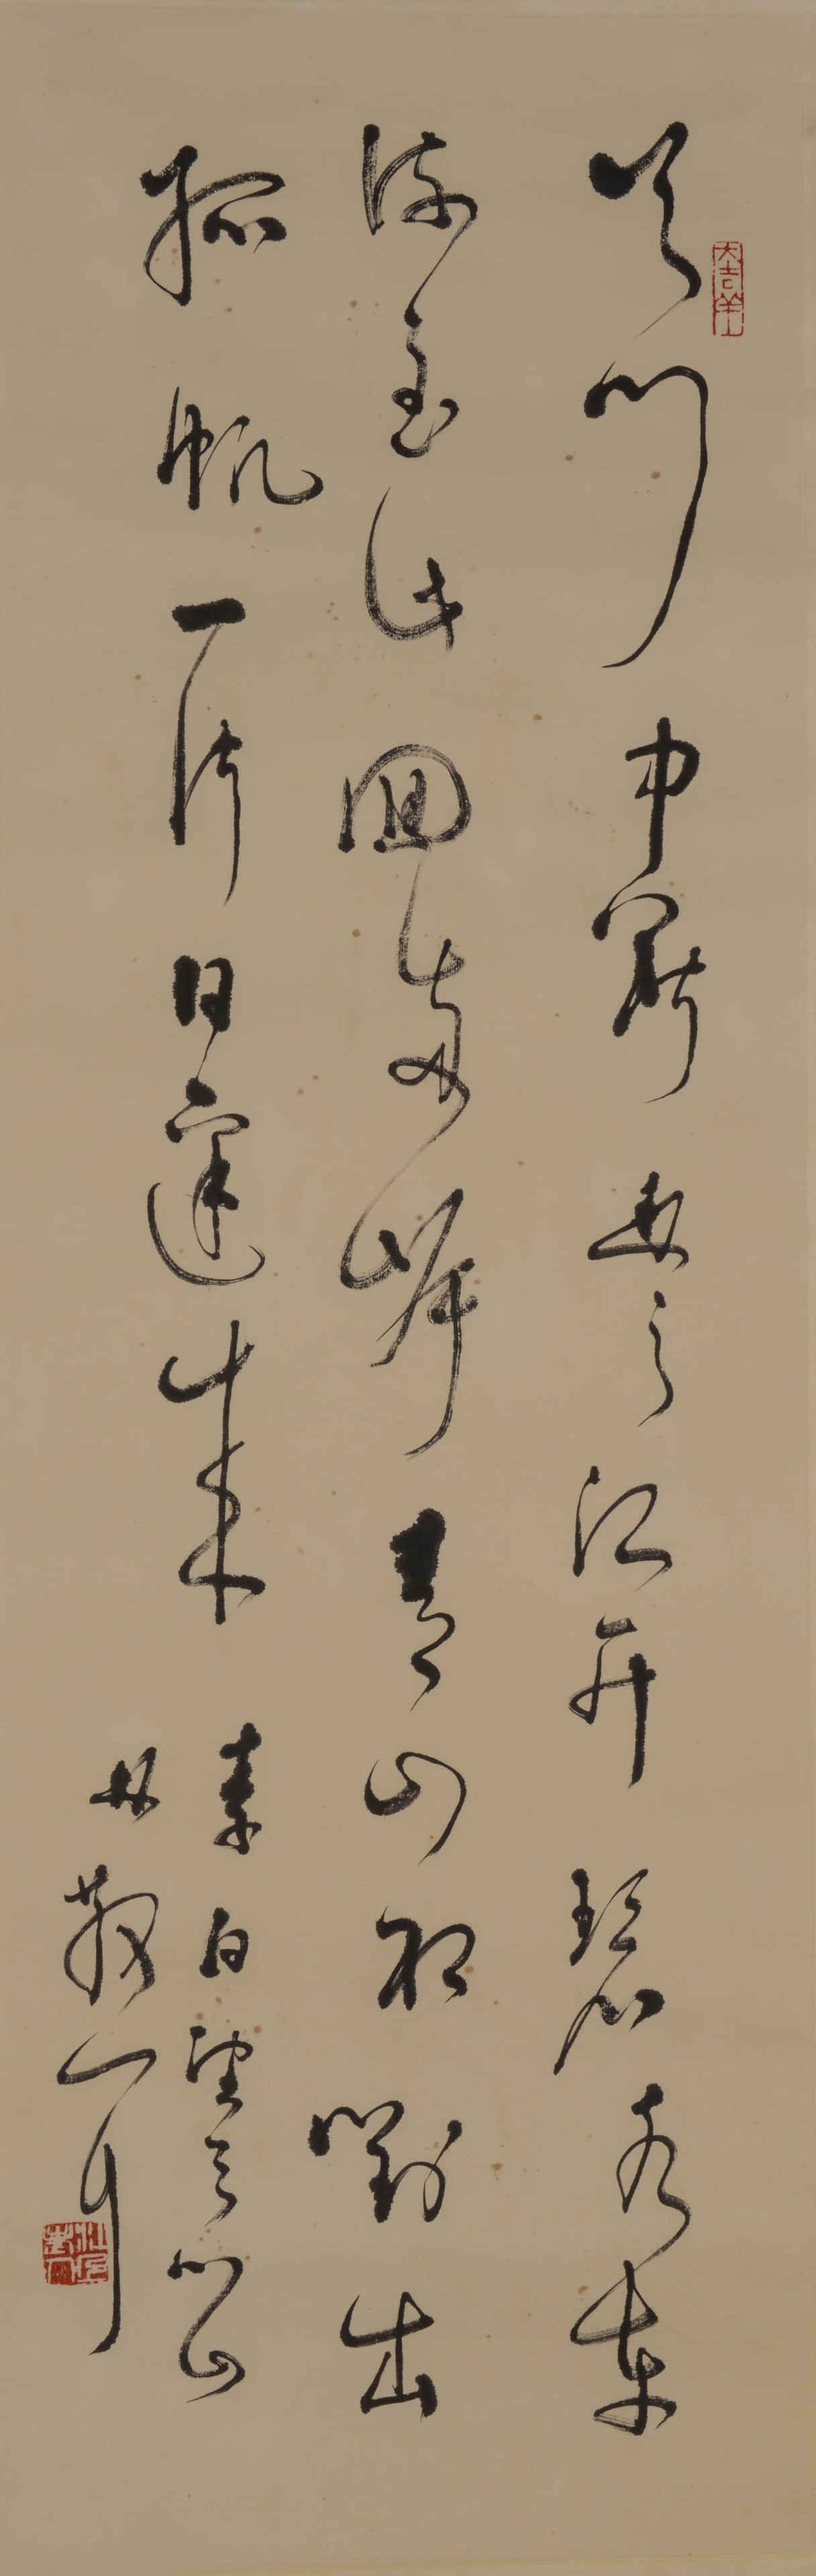 天門中斷楚江開碧水東
流至此回兩岸青山相對出
孤帆一片日邊來
李白望天門山
林散耳
大吉羊